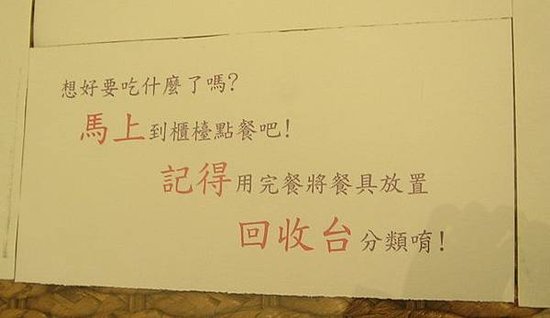 想好要吃什麼了嗎?
馬上到櫃檯點餐吧!
記得用完餐將餐具放置
回收台分類唷!